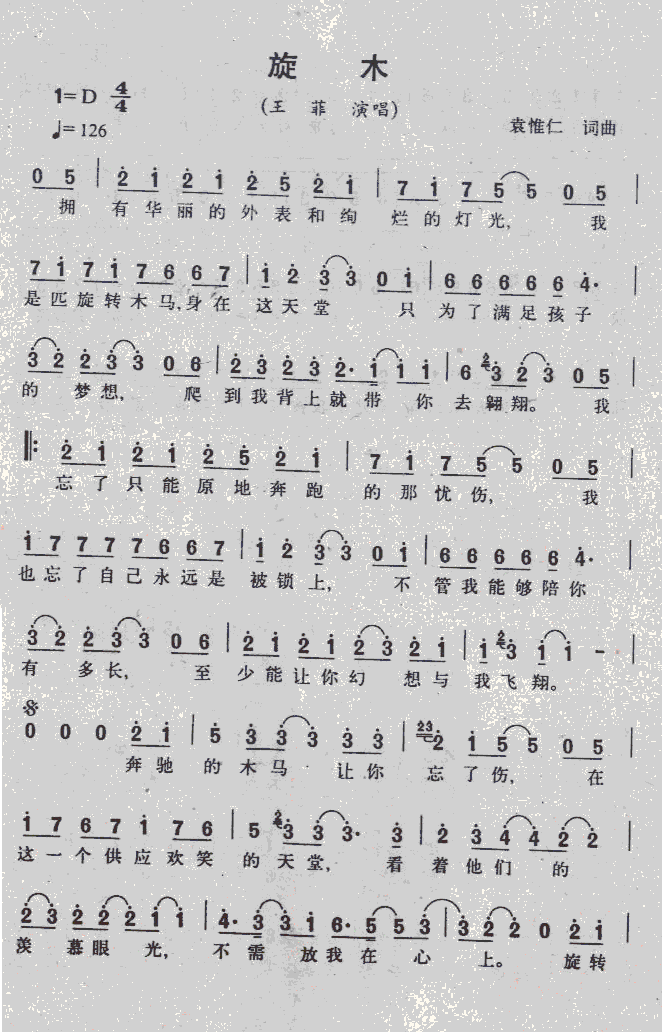 旋 木
1=D 4/4
(王 菲 演唱)
♩=126
袁惟仁 词曲
0 5 | 2̇ 1̇ 2̇ 1̇ 2̇ 5̇ 2̇ 1̇ | 7 1̇ 7 5 5 0 5 |
拥 有华丽的外表和绚 烂的灯光, 我
7 1̇ 7 1̇ 7 6 6 7 | 1̇ 2̇ 3̇ 3̇ 0 1̇ | 6 6 6 6 6 4̇· |
是匹旋转木马,身在 这天堂 只 为了满足孩子
3̇ 2̇ 2̇ 3̇ 3̇ 0 6 | 2̇ 3̇ 2̇ 3̇ 2̇· 1̇ 1̇ 1̇ | 6 2̇ 3̇ 2̇ 3̇ 0 5 |
的 梦想, 爬 到我背上就带 你 去翱翔。 我
‖: 2̇ 1̇ 2̇ 1̇ 2̇ 5̇ 2̇ 1̇ | 7 1̇ 7 5 5 0 5 |
忘了只能原地奔跑 的那忧伤, 我
1̇ 7 7 7 7 6 6 7 | 1̇ 2̇ 3̇ 3̇ 0 1̇ | 6 6 6 6 6 4̇· |
也忘了自己永远是 被锁上, 不 管我能够陪你
3̇ 2̇ 2̇ 3̇ 3̇ 0 6 | 2̇ 1̇ 2̇ 1̇ 2̇ 3̇ 2̇ 1̇ | 1̇ 2̇ 3̇ 1̇ 1̇ - |
有 多长, 至 少能让你幻 想与 我飞翔。
𝄋
0 0 0 2̇ 1̇ | 5̇ 3̇ 3̇ 3̇ 3̇ 3̇ | 2̇3̇ 2̇ 1̇ 5 5 0 5 |
奔驰 的木马 让你 忘了伤, 在
1̇ 7 6 7 1̇ 7 6 | 5 2̇ 3̇ 3̇ 3̇· 3̇ | 2̇ 3̇ 4̇ 4̇ 2̇ 2̇ |
这一个供应欢笑 的天堂, 看 着他们 的
2̇ 3̇ 2̇ 2̇ 2̇ 1̇ 1̇ | 4̇· 3̇ 3̇ 1̇ 6· 5 5 3̇ | 3̇ 2̇ 2̇ 0 2̇ 1̇ |
羡 慕眼 光, 不需 放我在 心 上。 旋转